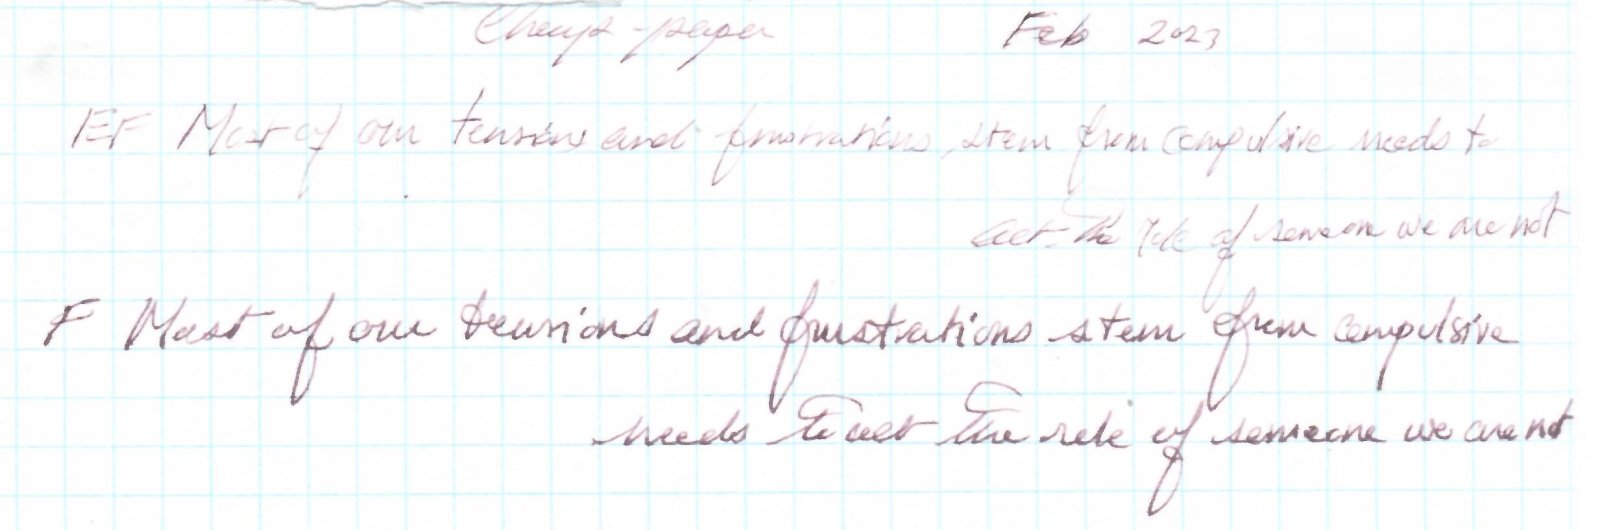 Cheap-paper Feb 2023
EF Most of our tensions and frustrations, stem from compulsive needs to
act the role of someone we are not
F Most of our tensions and frustrations stem from compulsive
needs to act the role of someone we are not